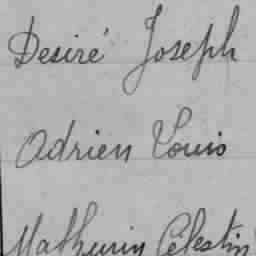 Desiré Joseph
Adrien Louis
Mathurin Célestin